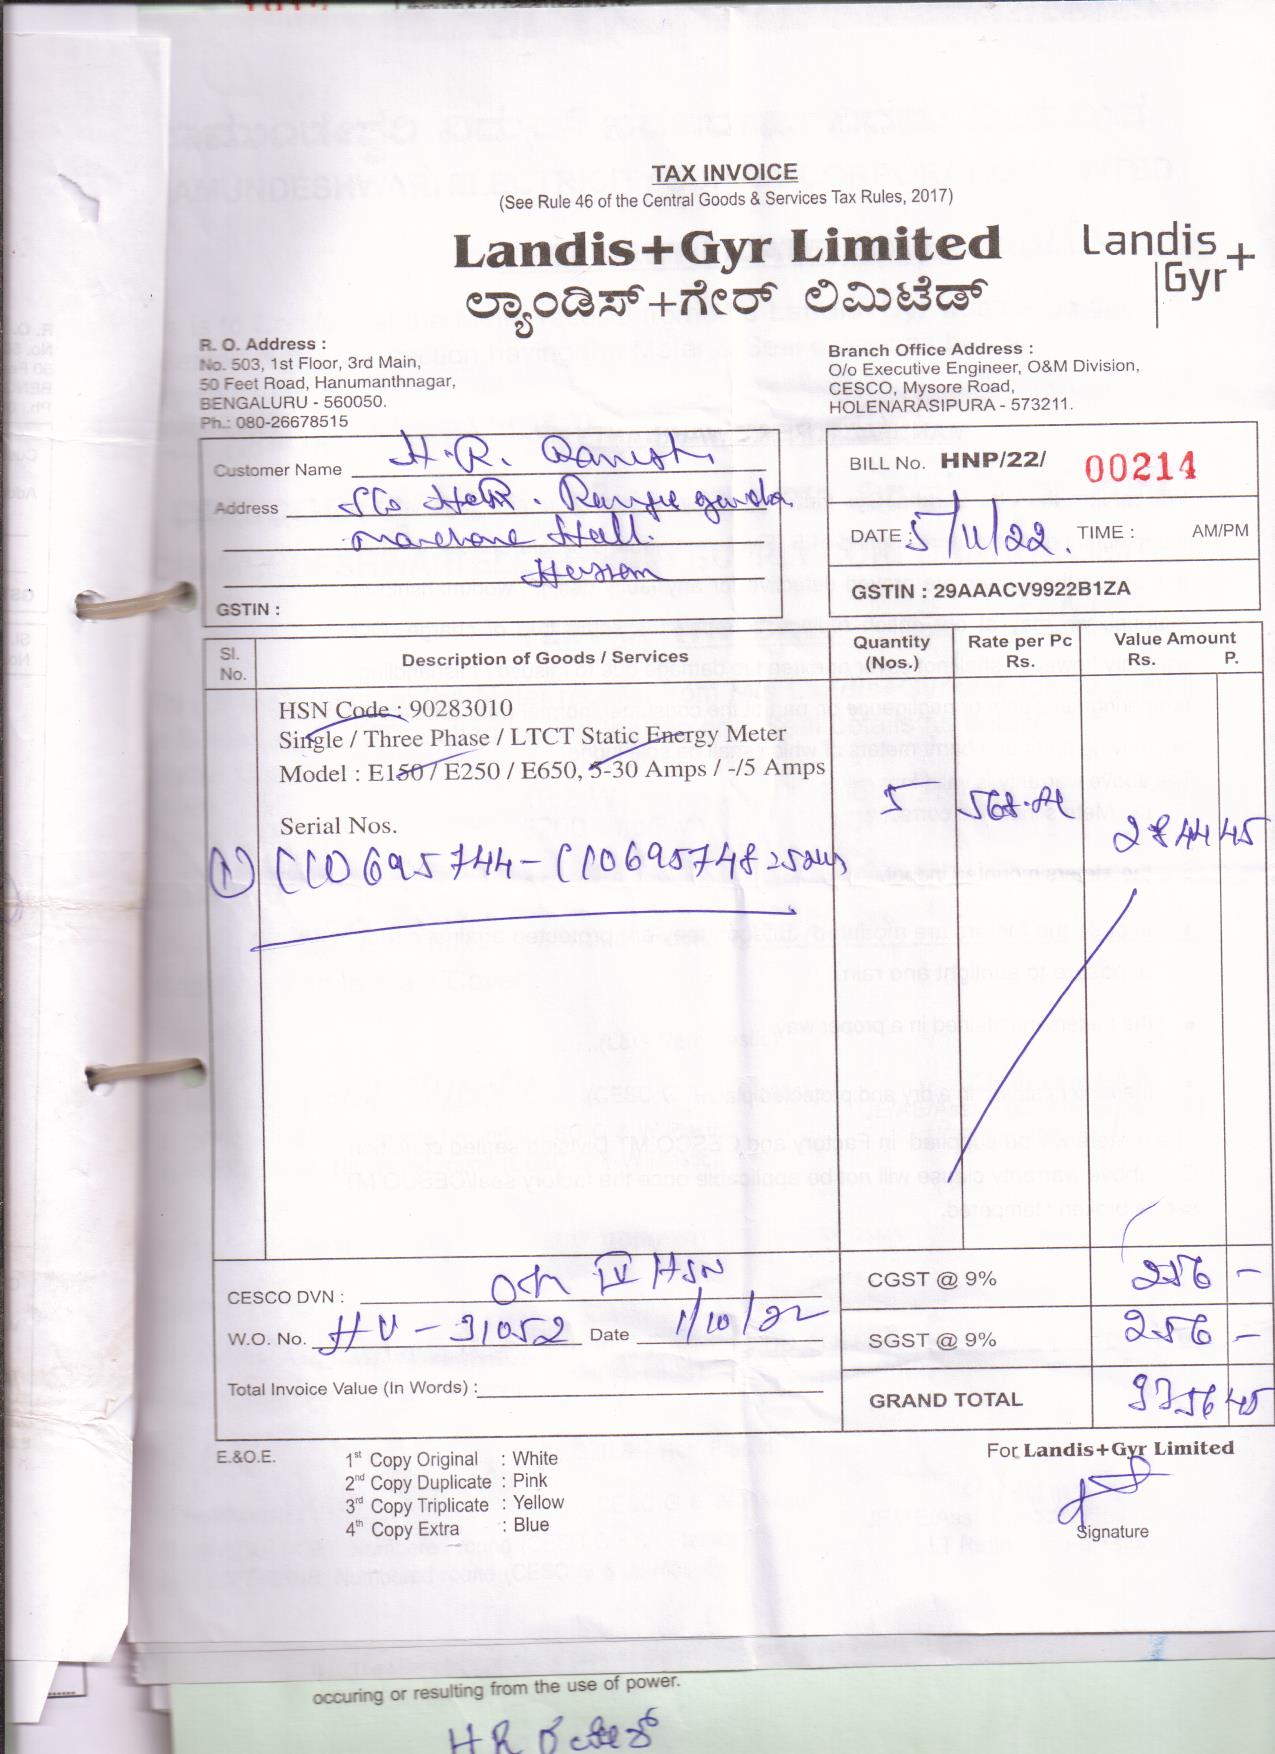 TAX INVOICE
(See Rule 46 of the Central Goods & Services Tax Rules, 2017)
Landis+Gyr Limited
ಲ್ಯಾಂಡಿಸ್+ಗೇರ್ ಲಿಮಿಟೆಡ್
Landis
Gyr+
R. O. Address :
No. 503, 1st Floor, 3rd Main,
50 Feet Road, Hanumanthnagar,
BENGALURU - 560050.
Ph.: 080-26678515
Branch Office Address :
O/o Executive Engineer, O&M Division,
CESCO, Mysore Road,
HOLENARASIPURA - 573211.
Customer Name H.R.
Address S/o
Hassan
GSTIN :
BILL No. HNP/22/ 00214
DATE : 5/11/22. TIME : AM/PM
GSTIN : 29AAACV9922B1ZA
Sl. No. Description of Goods / Services Quantity (Nos.) Rate per Pc Rs. Value Amount Rs. P.
HSN Code : 90283010
Single / Three Phase / LTCT Static Energy Meter
Model : E150 / E250 / E650, 5-30 Amps / -/5 Amps
Serial Nos.
5 2844 45
CESCO DVN : IV HSN
W.O. No. HV - 31052 Date 1/10/22
Total Invoice Value (In Words) :
CGST @ 9% 256 -
SGST @ 9% 256 -
GRAND TOTAL 3356 45
E.&O.E.
1st Copy Original : White
2nd Copy Duplicate : Pink
3rd Copy Triplicate : Yellow
4th Copy Extra : Blue
For Landis+Gyr Limited
Signature
occuring or resulting from the use of power.
H R